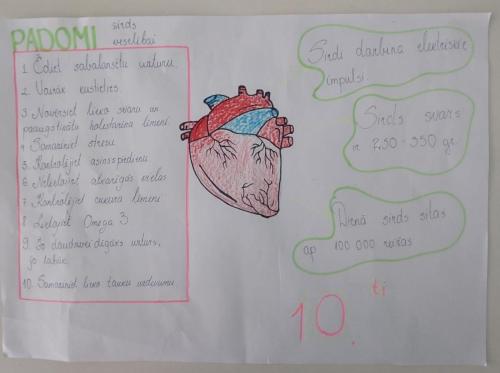 PADOMI sirds
veselībai
1. Ēdiet sabalansētu uzturu.
2. Vairāk kustieties.
3. Novērsiet lieko svaru un
paaugstinātu holesterīna līmeni.
4. Samaziniet stresu
5. Kontrolējiet asinsspiedienu
6. Nelietojiet atkarīgās vielas
7. Kontrolējiet cukura līmeni
8. Lietojiet Omega 3
9. Jo daudzveidīgāks uzturs,
jo labāk.
10. Samaziniet lieko tauku uzdevumu.
Sirdi darbina elektriskie
impulsi.
Sirds svars
ir 250-350 gr.
Dienā sirds sitas
ap 100 000 reižas
10. ti